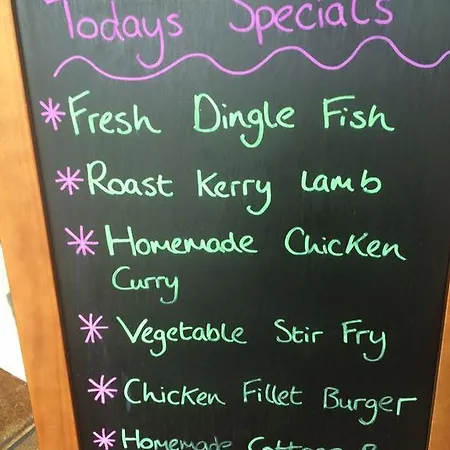 Todays Specials
* Fresh Dingle Fish
* Roast Kerry Lamb
* Homemade Chicken
Curry
* Vegetable Stir Fry
* Chicken Fillet Burger
* Homemade Cottage